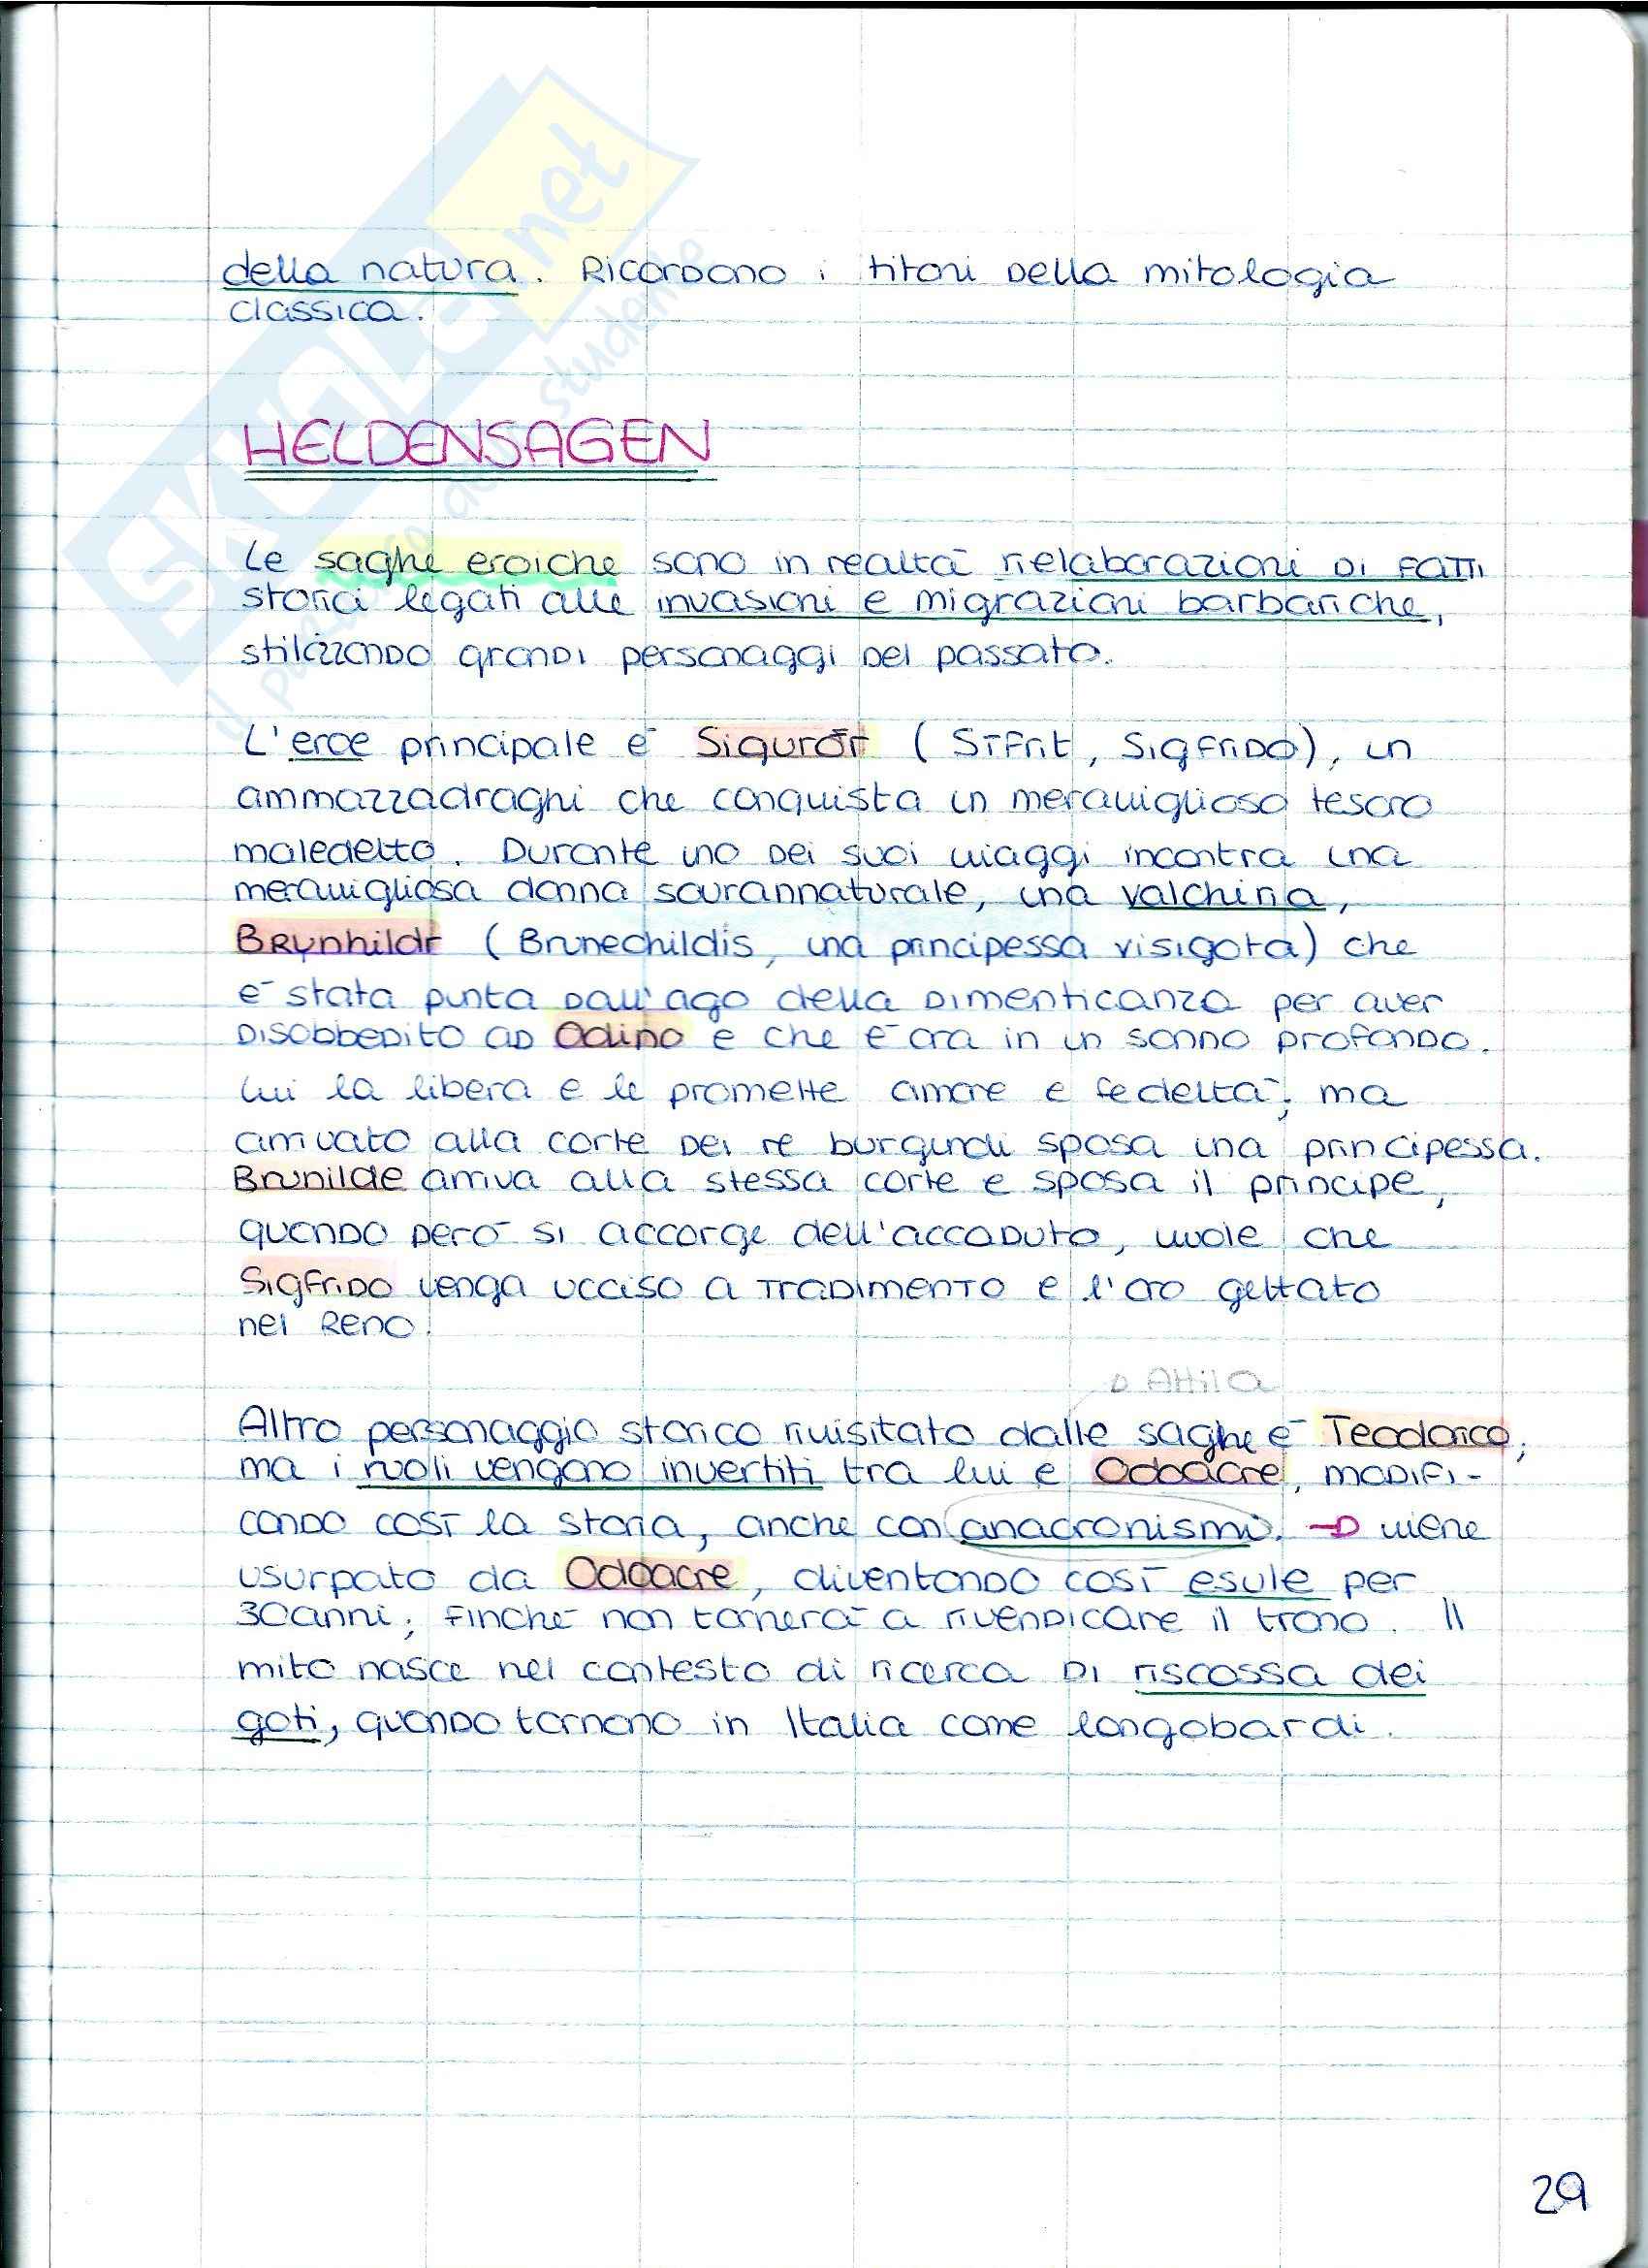 della natura. Ricordano i titani della mitologia
classica.
HELDENSAGEN
Le saghe eroiche sono in realtà rielaborazioni di fatti
storici legati alle invasioni e migrazioni barbariche,
stilizzando grandi personaggi del passato.
L'eroe principale è Sigurðr (Sīfrit, Sigfrido), un
ammazzadraghi che conquista un meraviglioso tesoro
maledetto. Durante uno dei suoi viaggi incontra una
meravigliosa donna sovrannaturale, una valchiria,
Brynhildr (Brunechildis, una principessa visigota) che
è stata punta dall'ago della dimenticanza per aver
disobbedito ad Odino e che è ora in un sonno profondo.
Lui la libera e le promette amore e fedeltà, ma
arrivato alla corte dei re burgundi sposa una principessa.
Brunilde arriva alla stessa corte e sposa il principe,
quando però si accorge dell'accaduto, vuole che
Sigfrido venga ucciso a tradimento e l'oro gettato
nel Reno.
Attila
Altro personaggio storico rivisitato dalle saghe è Teodorico,
ma i ruoli vengono invertiti tra lui e Odoacre, modifi-
cando così la storia, anche con anacronismi. → viene
usurpato da Odoacre, diventando così esule per
30anni, finché non tornerà a rivendicare il trono. Il
mito nasce nel contesto di ricerca di riscossa dei
goti, quando tornano in Italia come longobardi.
29
SKUOLA.net